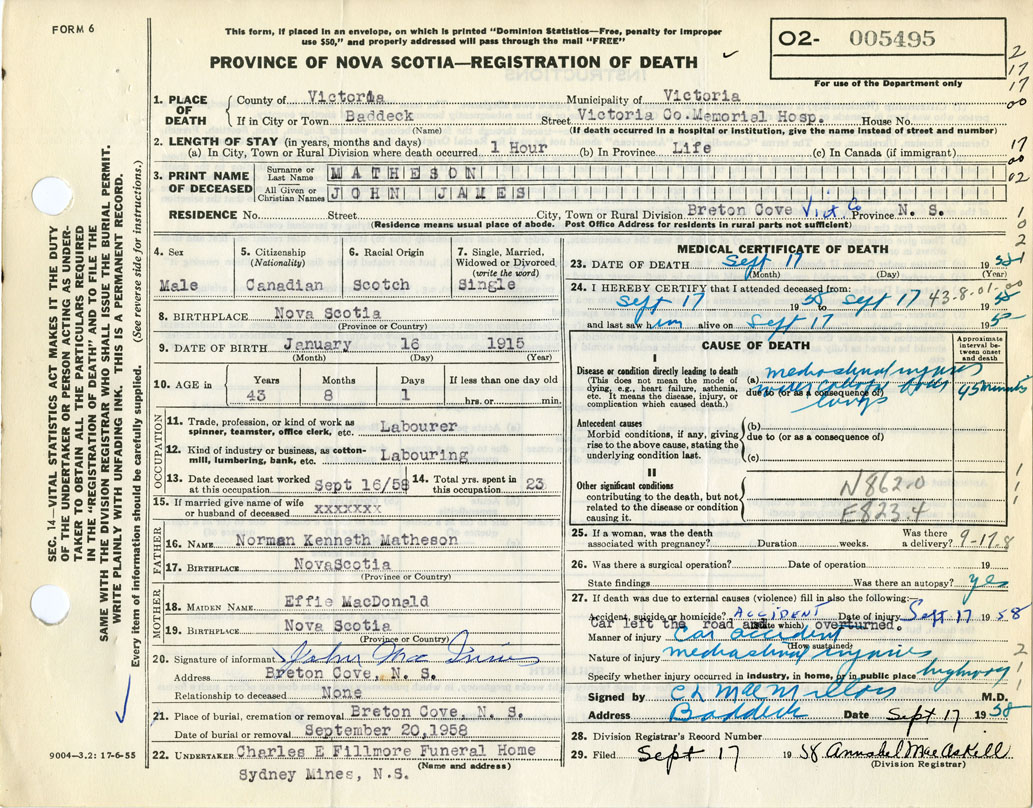 FORM 6
This form, if placed in an envelope, on which is printed "Dominion Statistics—Free, penalty for improper
use $50," and properly addressed will pass through the mail "FREE"
PROVINCE OF NOVA SCOTIA—REGISTRATION OF DEATH
02- 005495
For use of the Department only
2
17
17
00
17
00
02
1
0
2
SEC. 14—VITAL STATISTICS ACT MAKES IT THE DUTY
OF THE UNDERTAKER OR PERSON ACTING AS UNDER-
TAKER TO OBTAIN ALL THE PARTICULARS REQUIRED
IN THE "REGISTRATION OF DEATH" AND TO FILE THE
SAME WITH THE DIVISION REGISTRAR WHO SHALL ISSUE THE BURIAL PERMIT.
WRITE PLAINLY WITH UNFADING INK. THIS IS A PERMANENT RECORD.
Every item of information should be carefully supplied. (See reverse side for instructions.)
1. PLACE OF DEATH
County of Victoria Municipality of Victoria
If in City or Town Baddeck Street Victoria Co.Memorial Hosp. House No.
(Name) (If death occurred in a hospital or institution, give the name instead of street and number)
2. LENGTH OF STAY (in years, months and days)
(a) In City, Town or Rural Division where death occurred 1 Hour (b) In Province Life (c) In Canada (if immigrant)
3. PRINT NAME OF DECEASED
Surname or Last Name MATHESON
All Given or Christian Names JOHN JAMES
RESIDENCE No. Street City, Town or Rural Division Breton Cove Vict. Co Province N. S.
(Residence means usual place of abode. Post Office Address for residents in rural parts not sufficient)
4. Sex 5. Citizenship (Nationality) 6. Racial Origin 7. Single, Married, Widowed or Divorced (write the word)
Male Canadian Scotch Single
8. BIRTHPLACE Nova Scotia
(Province or Country)
9. DATE OF BIRTH January 16 1915
(Month) (Day) (Year)
10. AGE in Years Months Days If less than one day old
43 8 1 hrs. or min.
OCCUPATION
11. Trade, profession, or kind of work as
spinner, teamster, office clerk, etc. Labourer
12. Kind of industry or business, as cotton-
mill, lumbering, bank, etc. Labouring
13. Date deceased last worked at this occupation Sept 16/58 14. Total yrs. spent in this occupation 23
15. If married give name of wife
or husband of deceased xxxxxxx
FATHER
16. NAME Norman Kenneth Matheson
17. BIRTHPLACE NovaScotia
(Province or Country)
MOTHER
18. MAIDEN NAME Effie MacDonald
19. BIRTHPLACE Nova Scotia
(Province or Country)
20. Signature of informant John Mac Innis
Address Breton Cove, N. S.
Relationship to deceased None
21. Place of burial, cremation or removal Breton Cove, N. S.
Date of burial or removal September 20,1958
22. UNDERTAKER Charles E Fillmore Funeral Home
(Name and address)
Sydney Mines, N.S.
9004—3.2: 17-6-55
MEDICAL CERTIFICATE OF DEATH
23. DATE OF DEATH Sept 17 1958
(Month) (Day) (Year)
24. I HEREBY CERTIFY that I attended deceased from:
Sept 17 1958 Sept 17 1958
43-8-01-00
and last saw him alive on Sept 17 1958
CAUSE OF DEATH
Approximate interval be-tween onset and death
I
Disease or condition directly leading to death
(This does not mean the mode of
dying, e.g., heart failure, asthenia,
etc. It means the disease, injury, or
complication which caused death.)
(a) mediastinal injuries
due to (or as a consequence of)
lungs
95 minutes
Antecedent causes
Morbid conditions, if any, giving
rise to the above cause, stating the
underlying condition last.
(b)
due to (or as a consequence of)
(c)
II
Other significant conditions
contributing to the death, but not
related to the disease or condition
causing it.
N862.0
E823.4
1
1
1
25. If a woman, was the death
associated with pregnancy? Duration weeks. Was there a delivery?
9-17.8
26. Was there a surgical operation? Date of operation 19
State findings Was there an autopsy? yes
27. If death was due to external causes (violence) fill in also the following:
Accident, suicide or homicide? ACCIDENT Date of injury Sept 17 1958
(State which)
Car left the road and overturned.
Manner of injury Car accident
(How sustained)
Nature of injury mediastinal injuries
Specify whether injury occurred in industry, in home, or in public place highway
2
1
1
Signed by C L MacMillan M.D.
Address Baddeck Date Sept 17 1958
28. Division Registrar's Record Number
29. Filed Sept 17 1958 Annabel MacAskill
(Division Registrar)